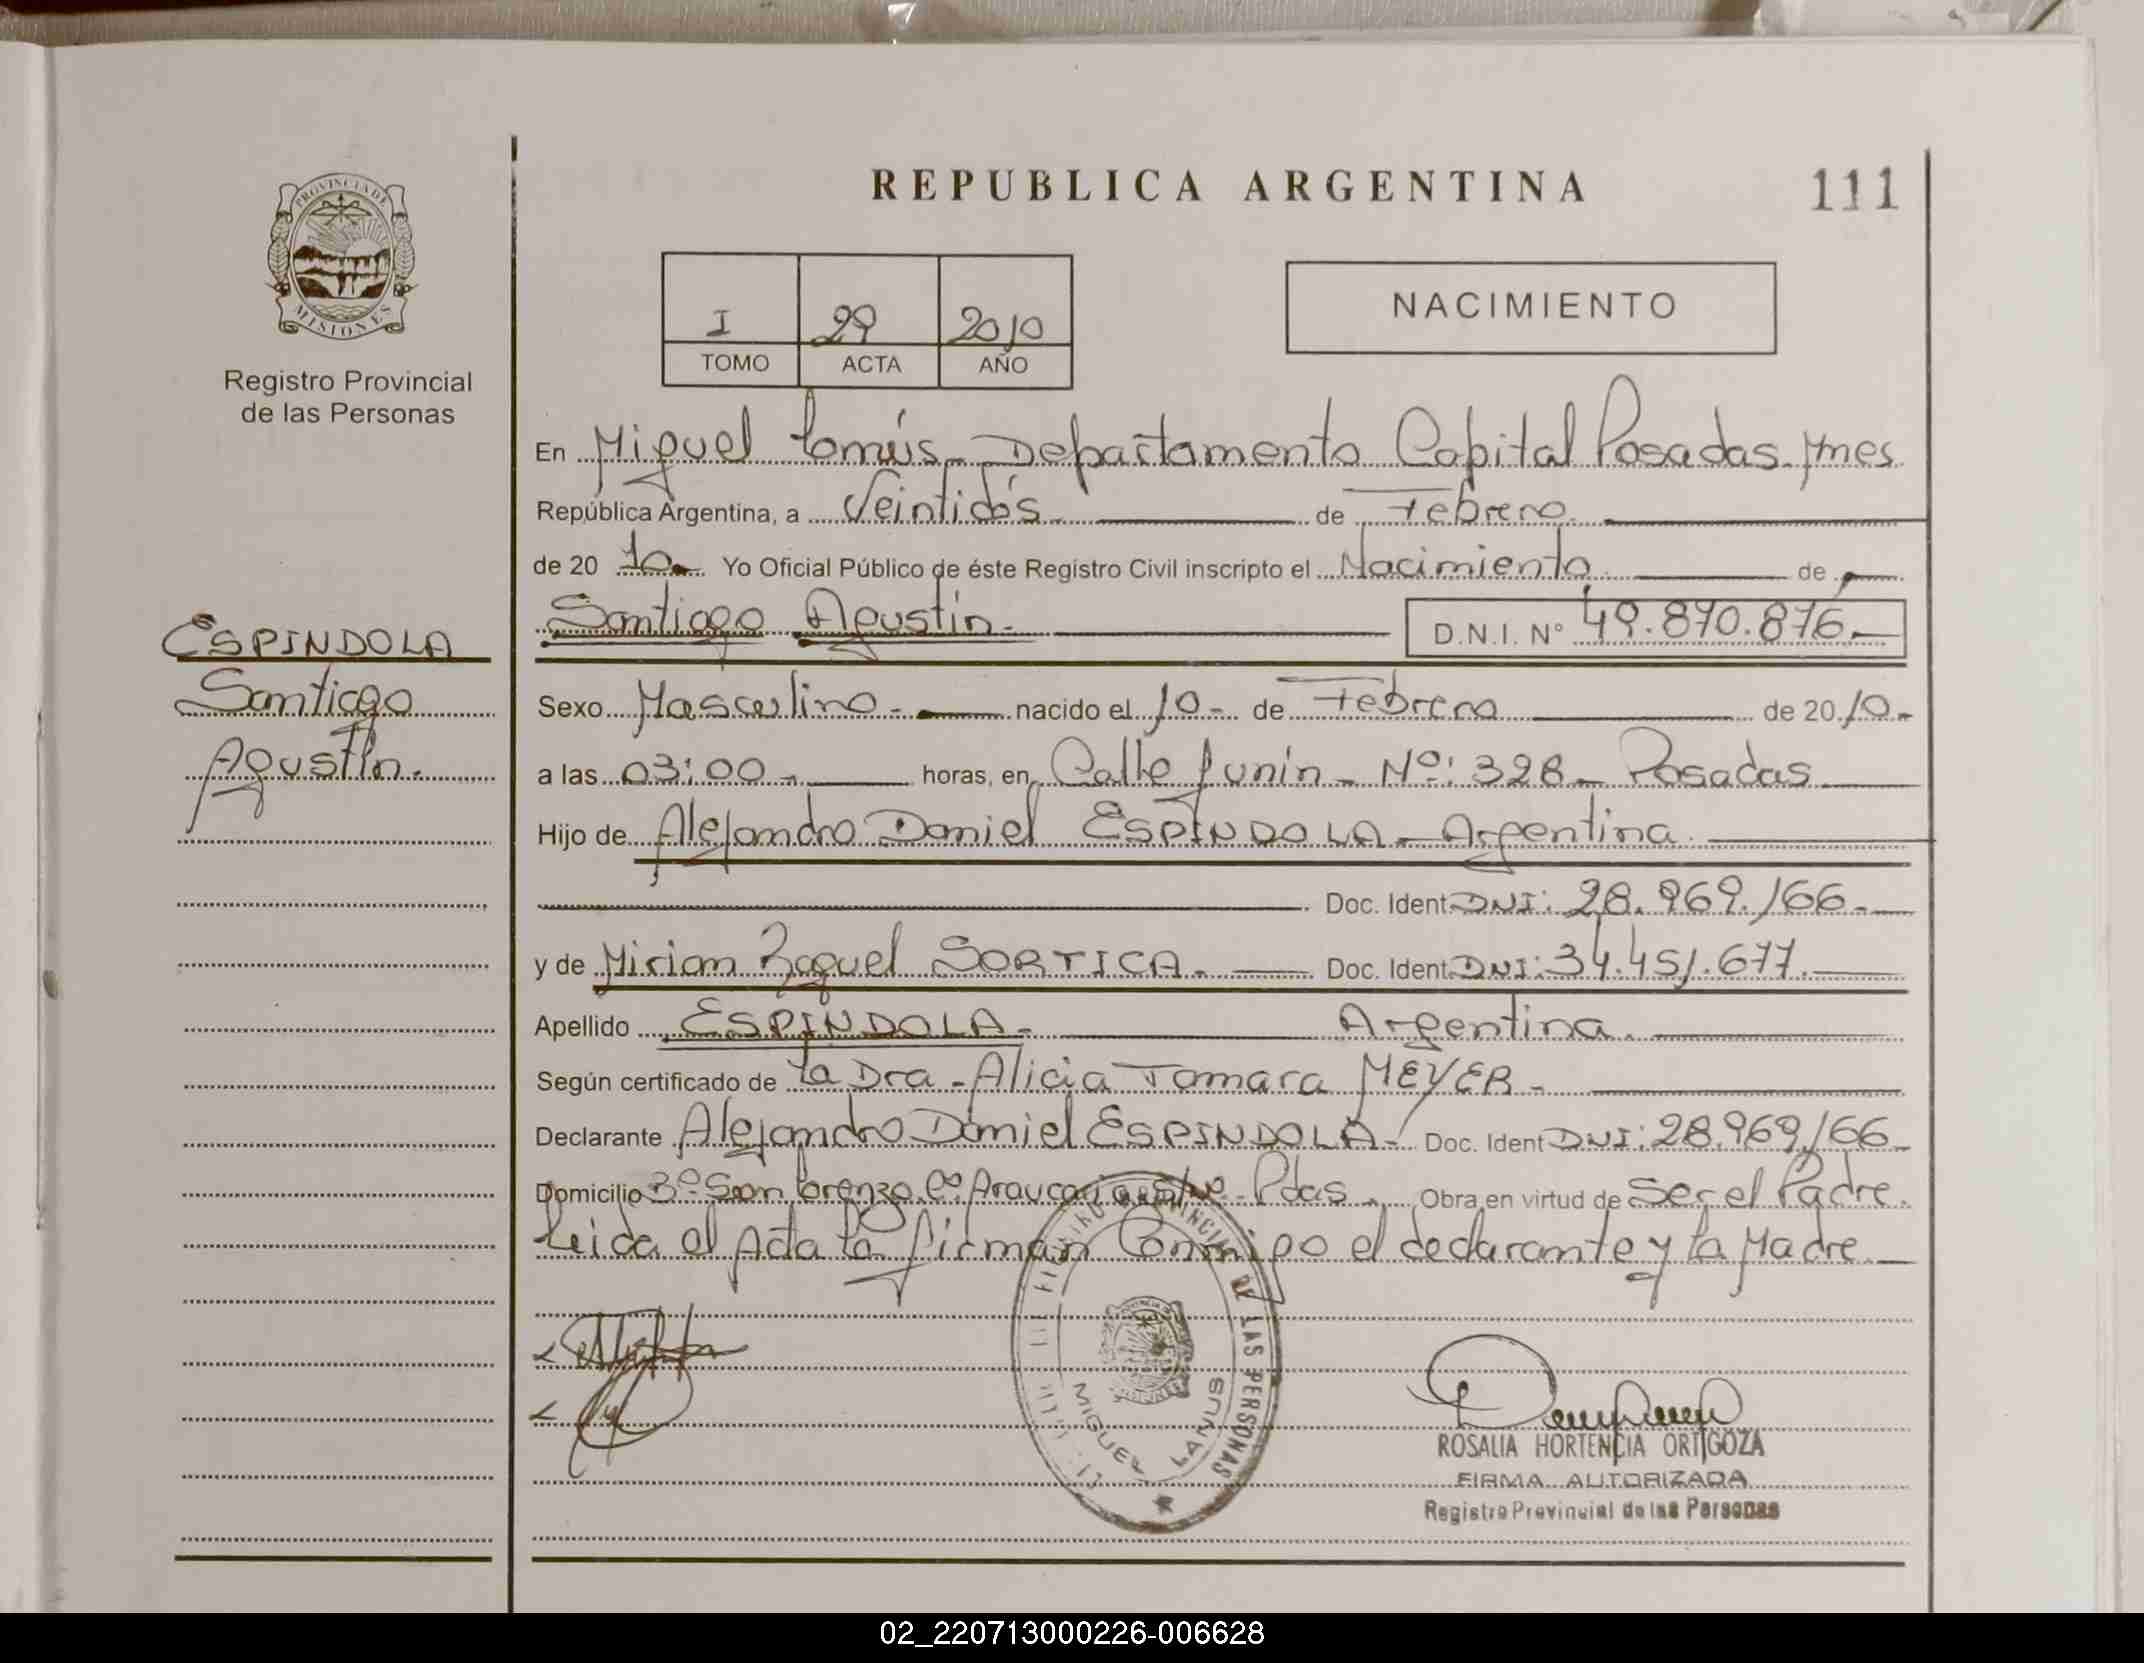 REPUBLICA ARGENTINA
111
PROVINCIA DE
MISIONES
Registro Provincial
de las Personas
I 29 2010
TOMO ACTA AÑO
NACIMIENTO
En Miguel Lanús - Departamento Capital Posadas Mnes
República Argentina, a Veintidós de Febrero
de 20 10 Yo Oficial Público de éste Registro Civil inscripto el Nacimiento de
Santiago Agustín.
D.N.I. N° 49.870.876
ESPINDOLA
Santiago
Agustín.
Sexo Masculino - nacido el 10 - de Febrero de 20 10 -
a las 03:00 - horas, en Calle Junín - Nº: 328 - Posadas
Hijo de Alejandro Daniel ESPINDOLA - Argentina
Doc. Ident DNI: 28.969.166 -
y de Mirian Raquel SORTICA. Doc. Ident DNI: 34.451.677.
Apellido ESPINDOLA - Argentina.
Según certificado de La Dra - Alicia Tamara MEYER -
Declarante Alejandro Daniel ESPINDOLA - Doc. Ident DNI: 28.969.166 -
Domicilio Bº San Lorenzo Pdas Obra en virtud de Ser el Padre.
Leida el Acta la firman Conmigo el declarante y la Madre
DE LAS PERSONAS
MIGUEL LANUS
ROSALIA HORTENCIA ORTIGOZA
FIRMA AUTORIZADA
Registro Provincial de las Personas
02_220713000226-006628